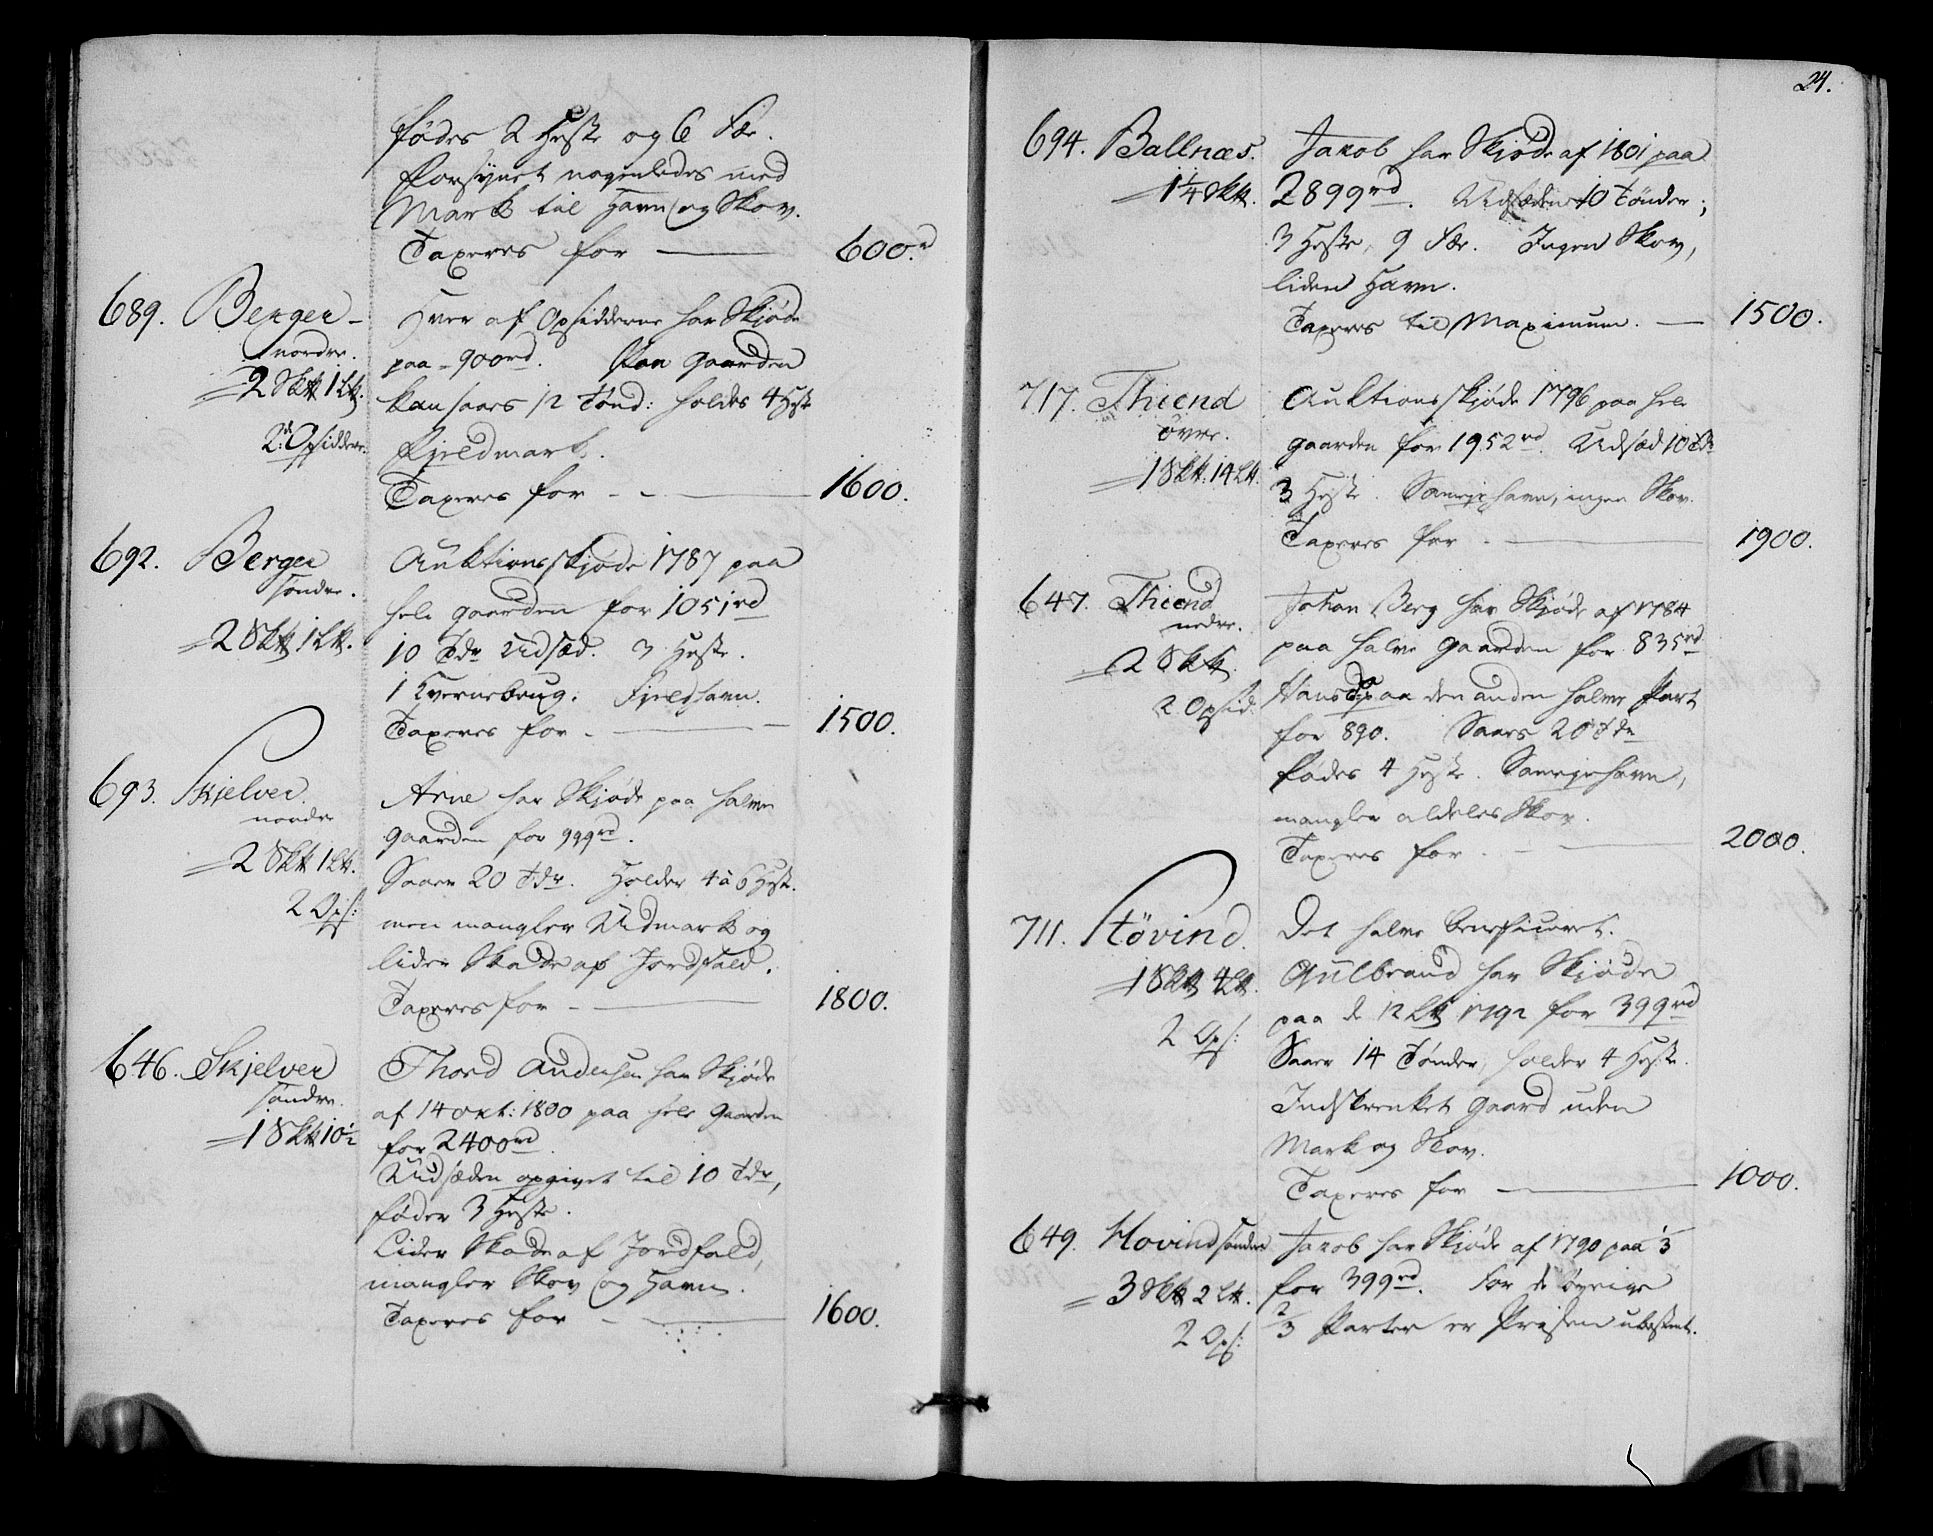 fødes 2 Heste og 6 Fæ.
Forsynet nogenledes med
Mark til Havn og Skov.
Taxeres for — 600.rd
689. Berger
nordre.
2 Sk℔ 1 L℔.
2de Opsiddere.
Hver af Opsidderne har Skjøde
paa 900rd. Paa Gaarden
kan saaes 12 Tønd: holdes 4 Heste
Fjeldmark.
Taxeres for — 1600.
692. Berger
søndre.
2 Sk℔ 1 L℔.
Auktionsskjøde 1787 paa
hele Gaarden for 1051rd
10 Tdr Udsæd. 3 Heste.
1 Kvernebrug. Fjeldhavn.
Taxeres for — 1500.
693. Skjelver.
nordre
2 Sk℔ 1 L℔.
2 Ops:
Arne har Skjøde paa halve
Gaarden for 999rd.
Saaer 20 Tdr. Holder 4 à 6 Hest.
men mangler Udmark og
lider Skade af Jordfald.
Taxeres for — 1800.
646. Skjelver
søndre.
1 Sk℔ 10½
Thord Andersen har Skjøde
af 14 Okt: 1800 paa hele Gaarden
for 2400rd.
Udsæden opgivet til 10 Tdr,
føder 3 Heste.
Lider Skade af Jordfald,
mangler Skov og Havn.
Taxeres for — 1600.
24.
694. Ballnæs.
1¼ Sk℔.
Jakob har Skjøde af 1801 paa
2899rd. Udsæden 10 Tønder;
3 Heste, 9 Fæ. Ingen Skov,
liden Havn.
Taxeres til Maximum. — 1500.
717. Thiend
øvre.
1 Sk℔. 14 L℔.
Auktionsskjøde 1796 paa hele
Gaarden for 1952rd. Udsæd 10 Tdr
3 Heste. Sameiehavn, ingen Skov.
Taxeres for — 1900.
647. Thiend
nedre.
2 Sk℔.
2 Opsid.
Johan Berg har Skjøde af 1784
paa halve Gaarden for 835rd
Hans paa den anden halve Part
for 890. Saaes 20 Tdr
fødes 4 Heste. Sameiehavn,
mangler aldeles Skov.
Taxeres for — 2000.
711. Støvind.
1 Sk℔ 4 L℔.
2 Ops:
Det halve beneficeret.
Gulbrand har Skjøde
paa de 12 L℔ 1792 for 399rd
Saaer 14 Tønder, holder 4 Heste.
Indskrenket Gaard uden
Mark og Skov.
Taxeres for — 1000.
649. Hovind søndre
3 Sk℔ 2 L℔.
2 Ops:
Jakob har Skjøde af 1790 paa ⅓
for 399rd. For de øvrige
⅔ Parter er Prisen ubestemt.